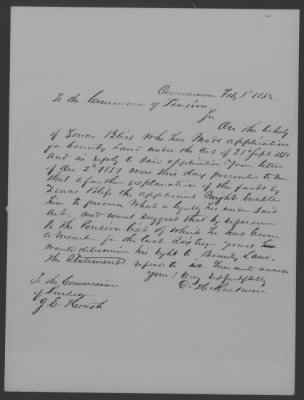 Feby 3d 1852
To the Commissioner of Pension
Sir
On the behalf
of Zenas Bliss who has made application
for Bounty Land under the act of 28 Sept 1850
and in reply to said application your letter
of 2d 1851 was this day presented to me
that a further explanation of the facts by
Zenas Bliss the applicant might enable
him to procure what is by the said
act, and would suggest that by reference
to the Pension list of which he has been
a for the last years
would determine his right to Bounty Land
The Statement refer to is
your Very respectfully
To the Commissioner
of Pension
J. E. Heath